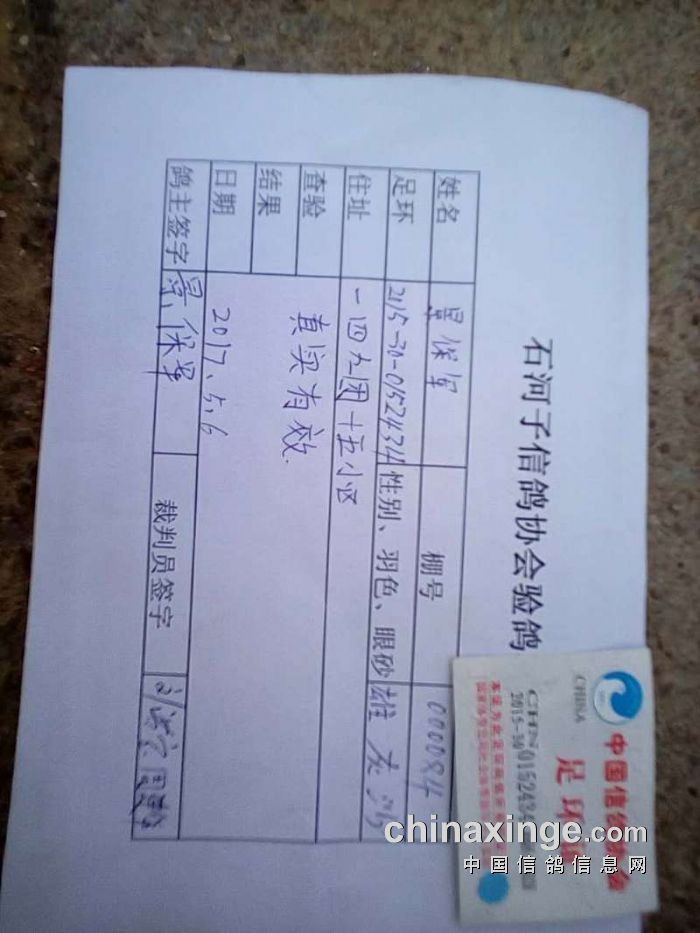 石河子信鸽协会验鸽
姓名 景保军 棚号 000084
足环 2015-30-0152434 性别、羽色、眼砂 雄 灰 沙
住址 一四九团十五小区
查验
结果 真实有效.
日期 2017.5.6
鸽主签字 景保军 裁判员签字
中国信鸽协会
CHINA
足环证
CHN
2015-30 0152434
chinaxinge.com
中国信鸽信息网